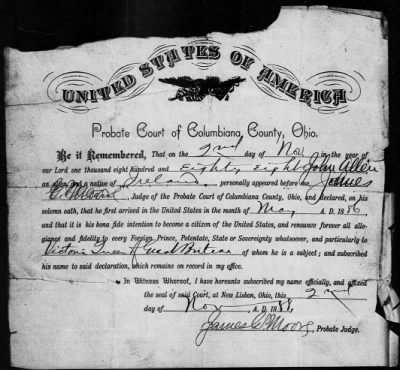 UNITED STATES OF AMERICA
Probate Court of Columbiana County, Ohio.
Be it Remembered, That on the 2nd day of Nov in the year of
our Lord one thousand eight hundred and Eighty Eight John Allen
an alien, and a native of Ireland personally appeared before me, James
C. Moore Judge of the Probate Court of Columbiana County, Ohio, and declared, on his
solemn oath, that he first arrived in the United States in the month of May A. D. 1886
and that it is his bona fide intention to become a citizen of the United States, and renounce forever all alle-
giance and fidelity to every Foreign Prince, Potentate, State or Sovereignty whatsoever, and particularly to
Victoria Queen of Great Britian of whom he is a subject; and subscribed
his name to said declaration, which remains on record in my office.
In Witness Whereof, I have hereunto subscribed my name officially, and affixed
the seal of said Court, at New Lisbon, Ohio, this 2nd
day of Nov A. D. 188
James C. Moore, Probate Judge.